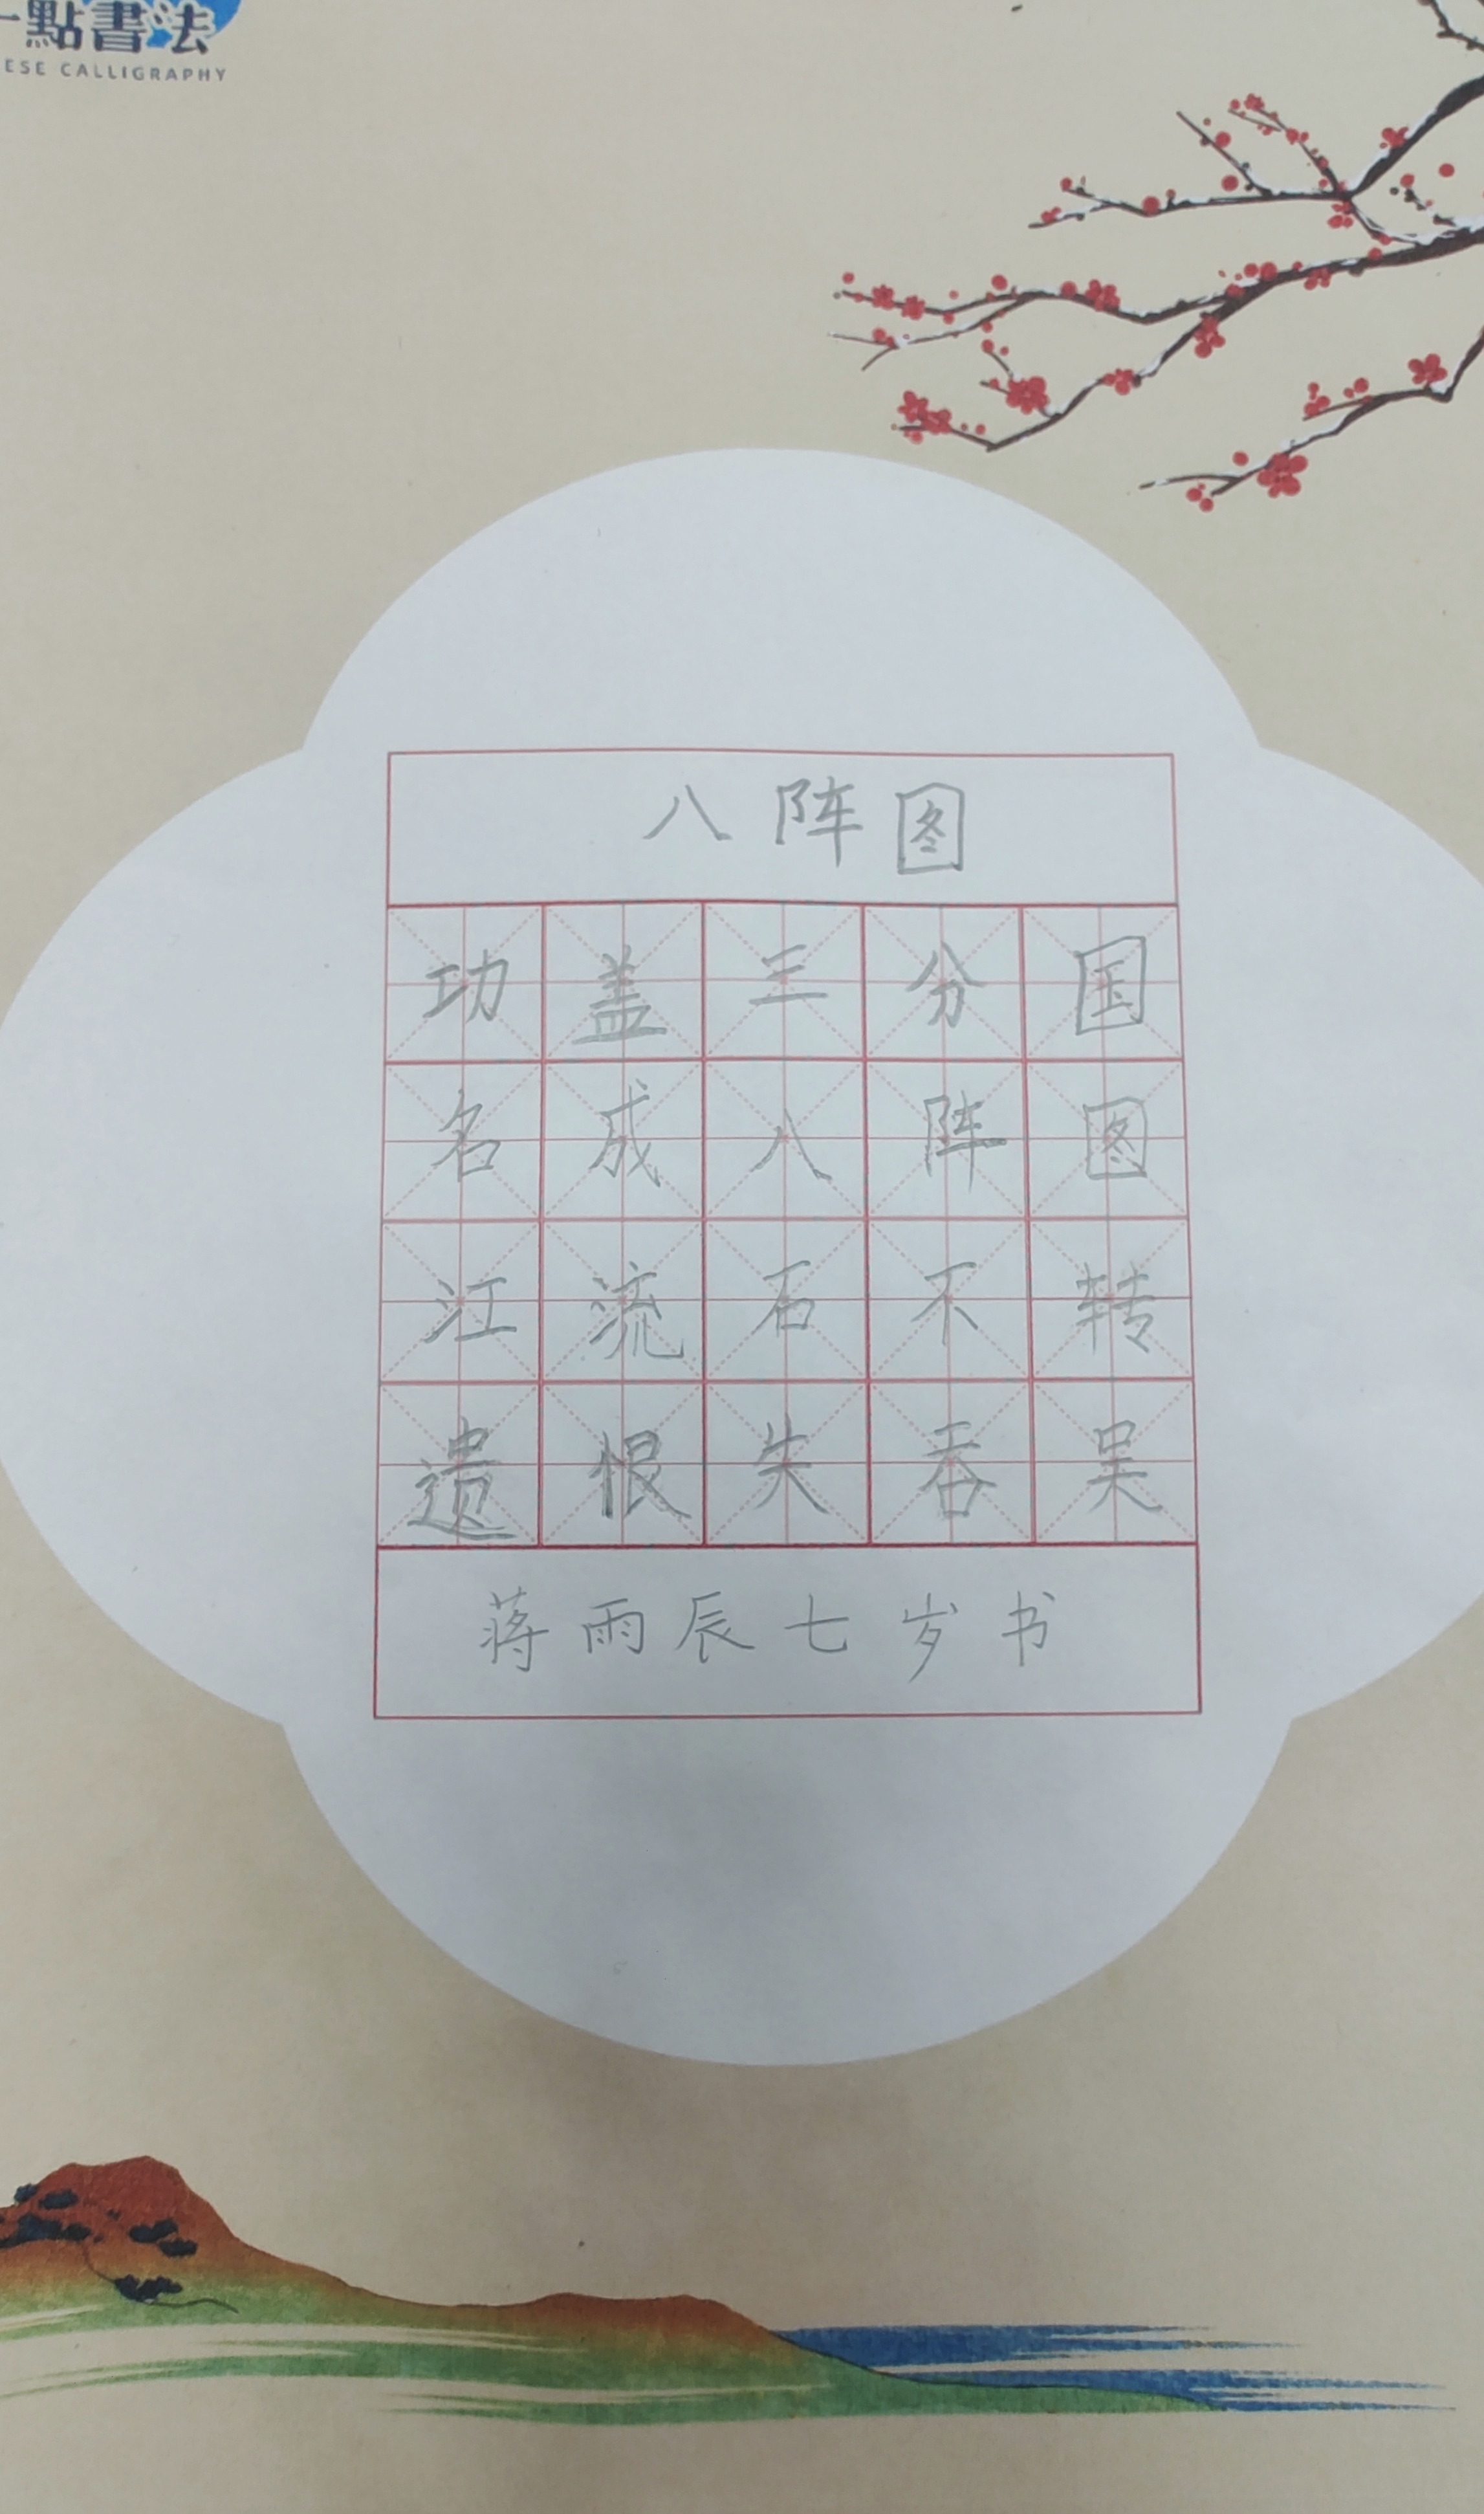 一點書法
ESE CALLIGRAPHY
八阵图
功盖三分国
名成八阵图
江流石不转
遗恨失吞吴
蒋雨辰七岁书